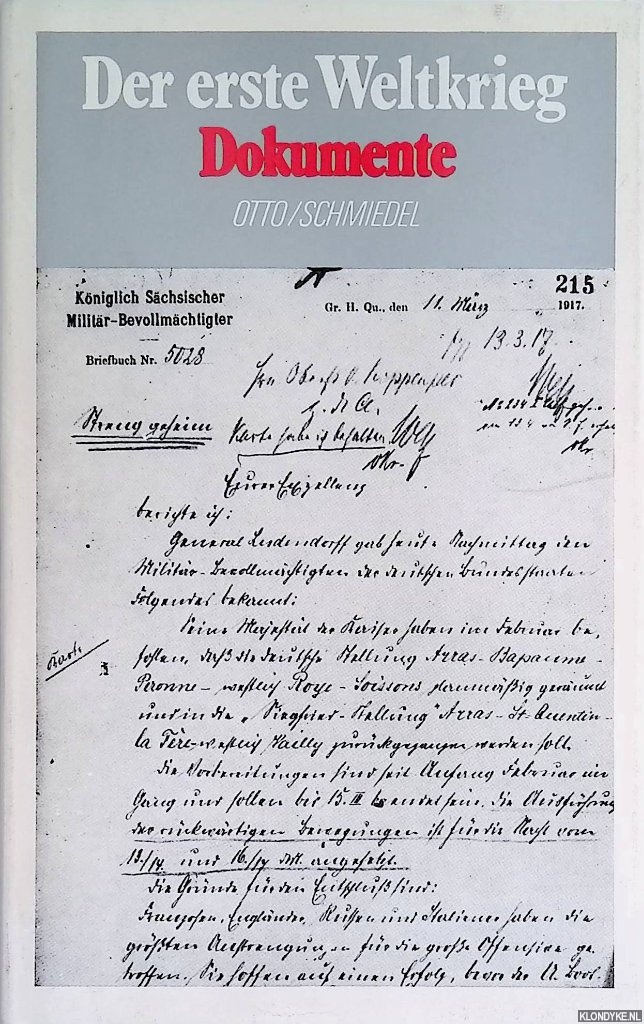 Der erste Weltkrieg
Dokumente
OTTO/SCHMIEDEL
215
Königlich Sächsischer
Militär-Bevollmächtigter
Gr. H. Qu., den 11. März 1917.
Briefbuch Nr. 5028
13.3.17
Streng geheim
Karte habe ich behalten
Eurer Exzellenz
berichte ich:
General Ludendorff gab heute Nachmittag den
Militär-Bevollmächtigten der deutschen Bundesstaaten
Folgendes bekannt:
Seine Majestät der Kaiser haben im Februar be-
Karte
fohlen, daß die deutsche Stellung Arras-Bapaume-
Peronne-westlich Roye-Soissons planmäßig geräumt
und in die "Siegfried-Stellung" Arras-St. Quentin-
la Fère-westlich Vailly zurückgegangen werden soll.
Die Vorbereitungen sind seit Anfang Februar im
Gang und sollen bis 15. III beendet sein. Die Ausführung
der rückwärtigen Bewegungen ist für die Nacht vom
und angesetzt.
Die Gründe für den Entschluß sind:
Franzosen, Engländer, Russen und Italiener haben die
größten Anstrengungen für die große Offensive ge-
troffen. Sie hoffen auf einen Erfolg, bevor der U. Boot-
KLONDYKE.NL